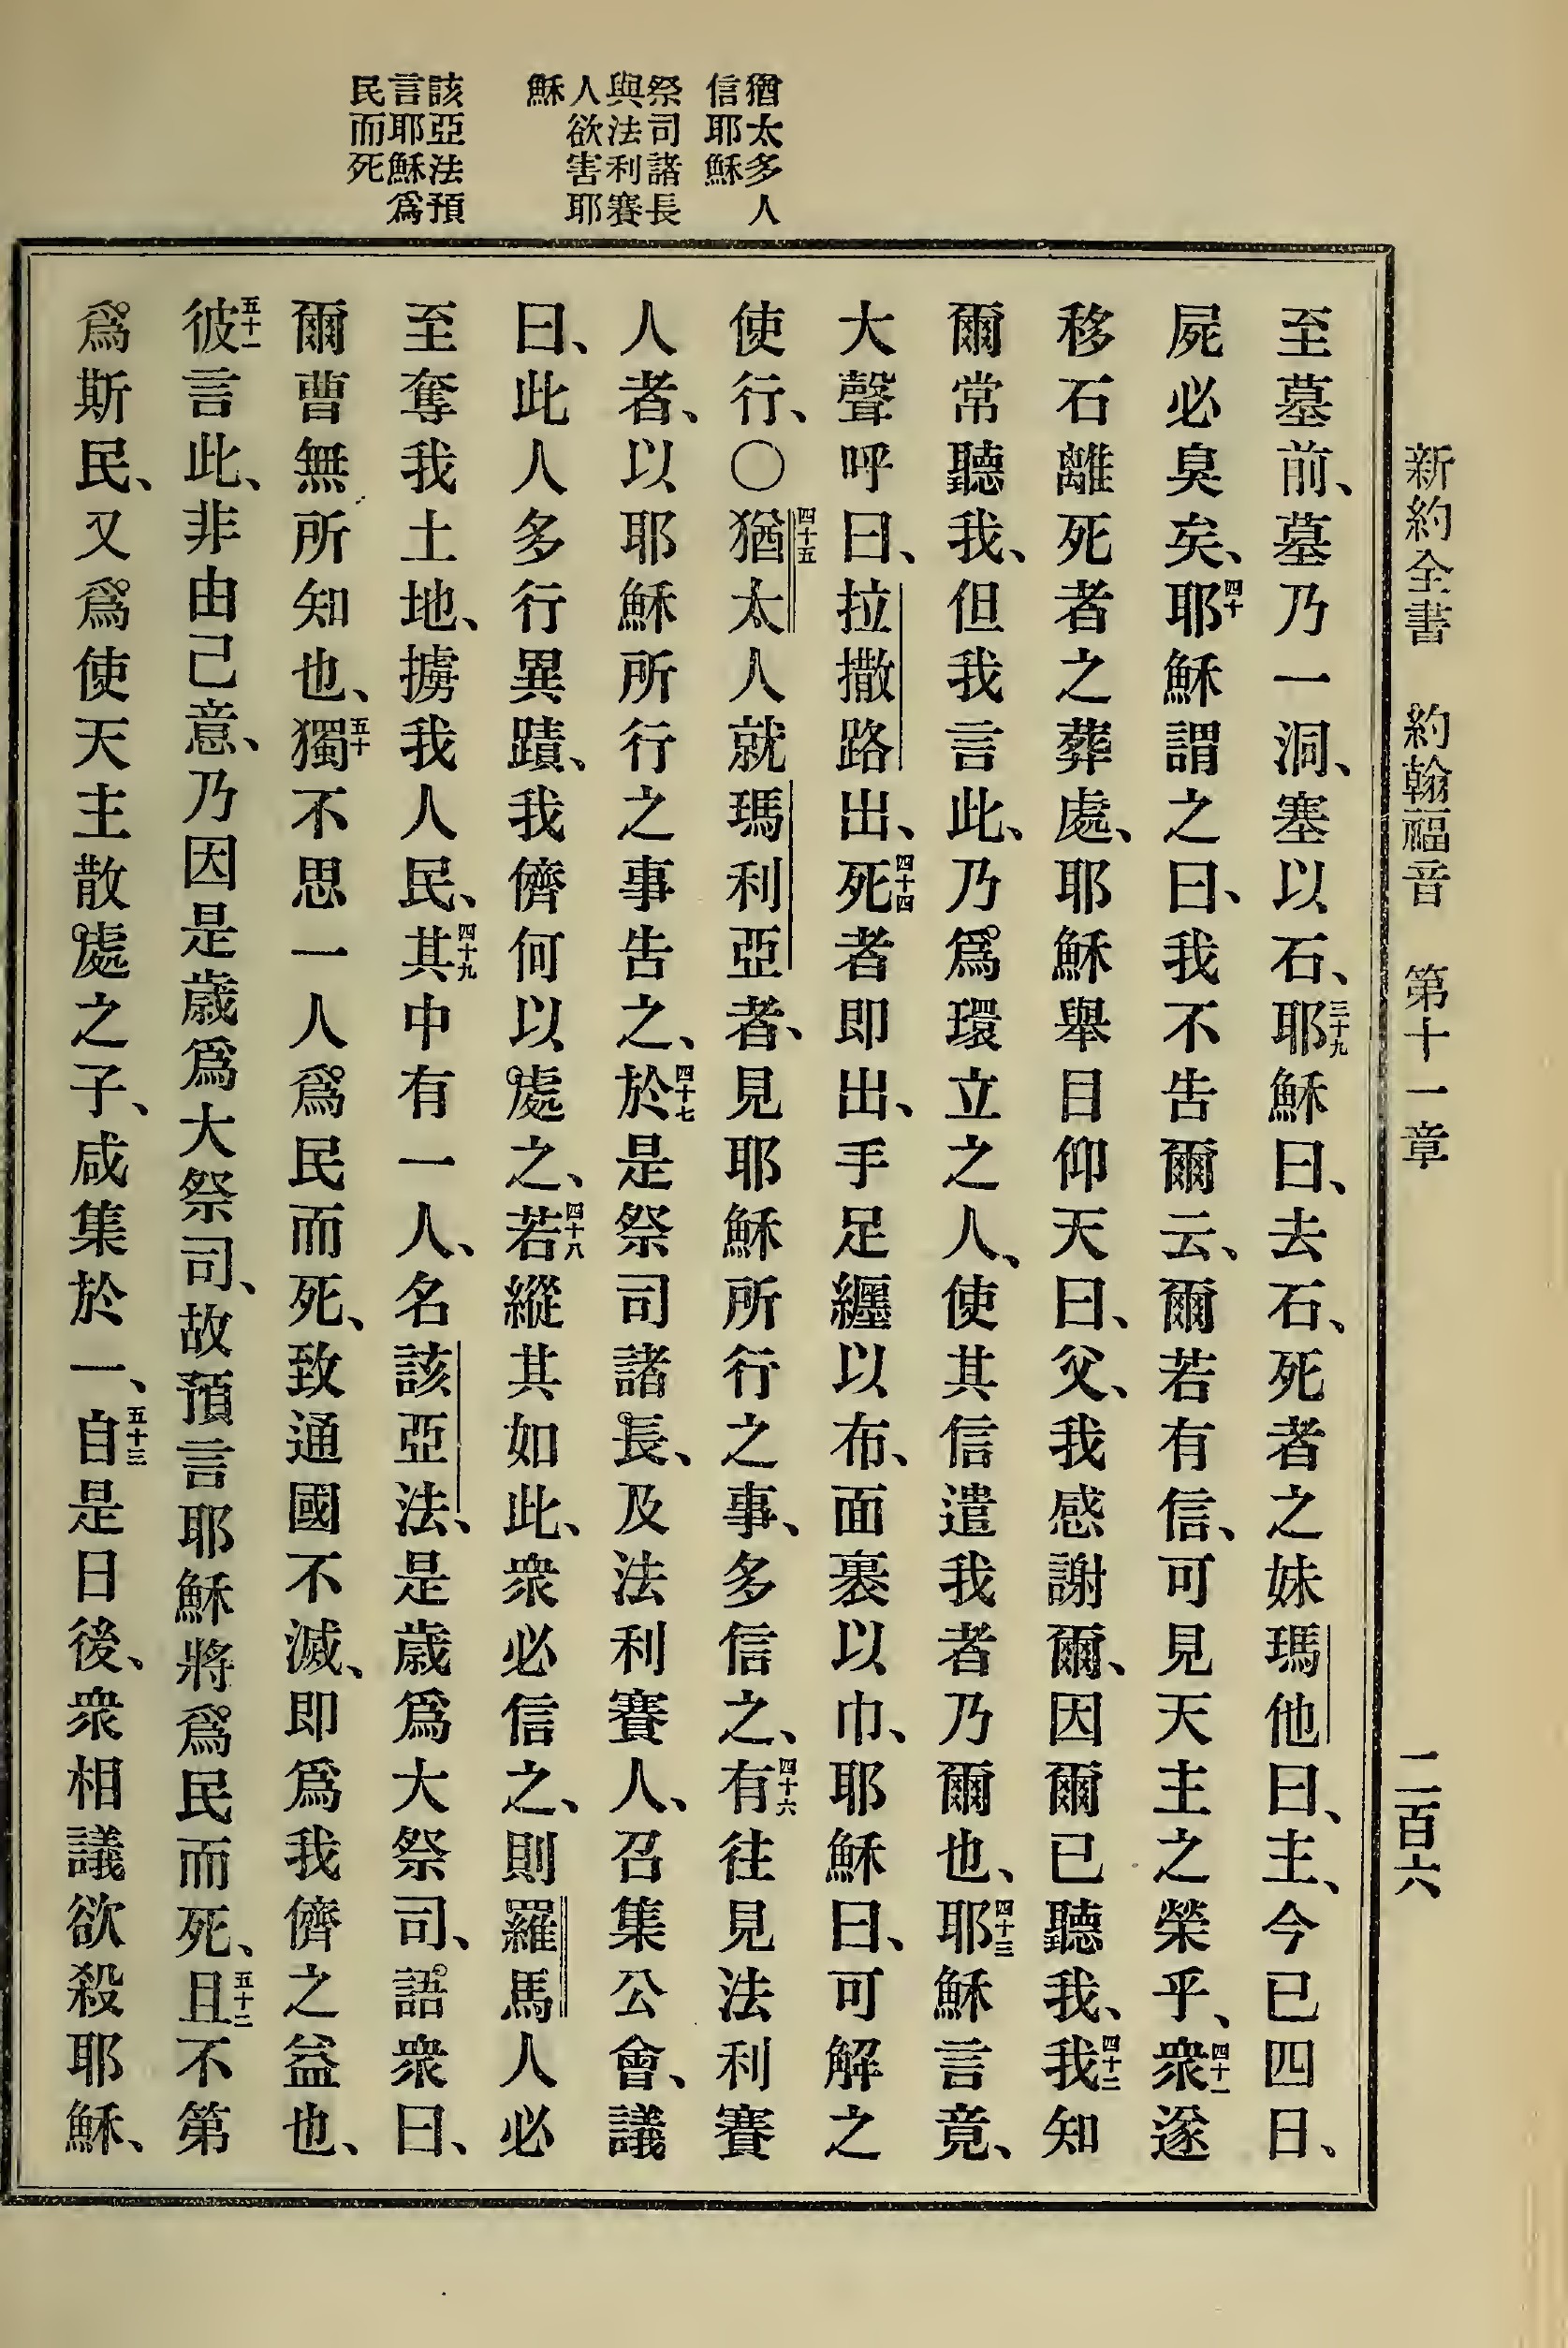 新約全書 約翰福音 第十一章 二百六
猶太多人
信耶穌
祭司諸長
與法利賽
人欲害耶
穌
該亞法預
言耶穌爲
民而死
至墓前、墓乃一洞、塞以石、三十九耶穌曰、去石、死者之妹瑪他曰、主、今已四日、
屍必臭矣、四十耶穌謂之曰、我不告爾云、爾若有信、可見天主之榮乎、四十一衆遂
移石離死者之葬處、耶穌舉目仰天曰、父、我感謝爾、因爾已聽我、四十二我知
爾常聽我、但我言此、乃爲環立之人、使其信遣我者乃爾也、四十三耶穌言竟、
大聲呼曰、拉撒路出、四十四死者即出、手足纏以布、面裹以巾、耶穌曰、可解之
使行、○四十五猶太人就瑪利亞者、見耶穌所行之事、多信之、四十六有往見法利賽
人者、以耶穌所行之事告之、四十七於是祭司諸長、及法利賽人、召集公會、議
曰、此人多行異蹟、我儕何以處之、四十八若縱其如此、衆必信之、則羅馬人必
至奪我土地、擄我人民、四十九其中有一人、名該亞法、是歲爲大祭司、語衆曰、
爾曹無所知也、五十獨不思一人爲民而死、致通國不滅、即爲我儕之益也、
五十一彼言此、非由己意、乃因是歲爲大祭司、故預言耶穌將爲民而死、五十二且不第
爲斯民、又爲使天主散處之子、咸集於一、五十三自是日後、衆相議欲殺耶穌、